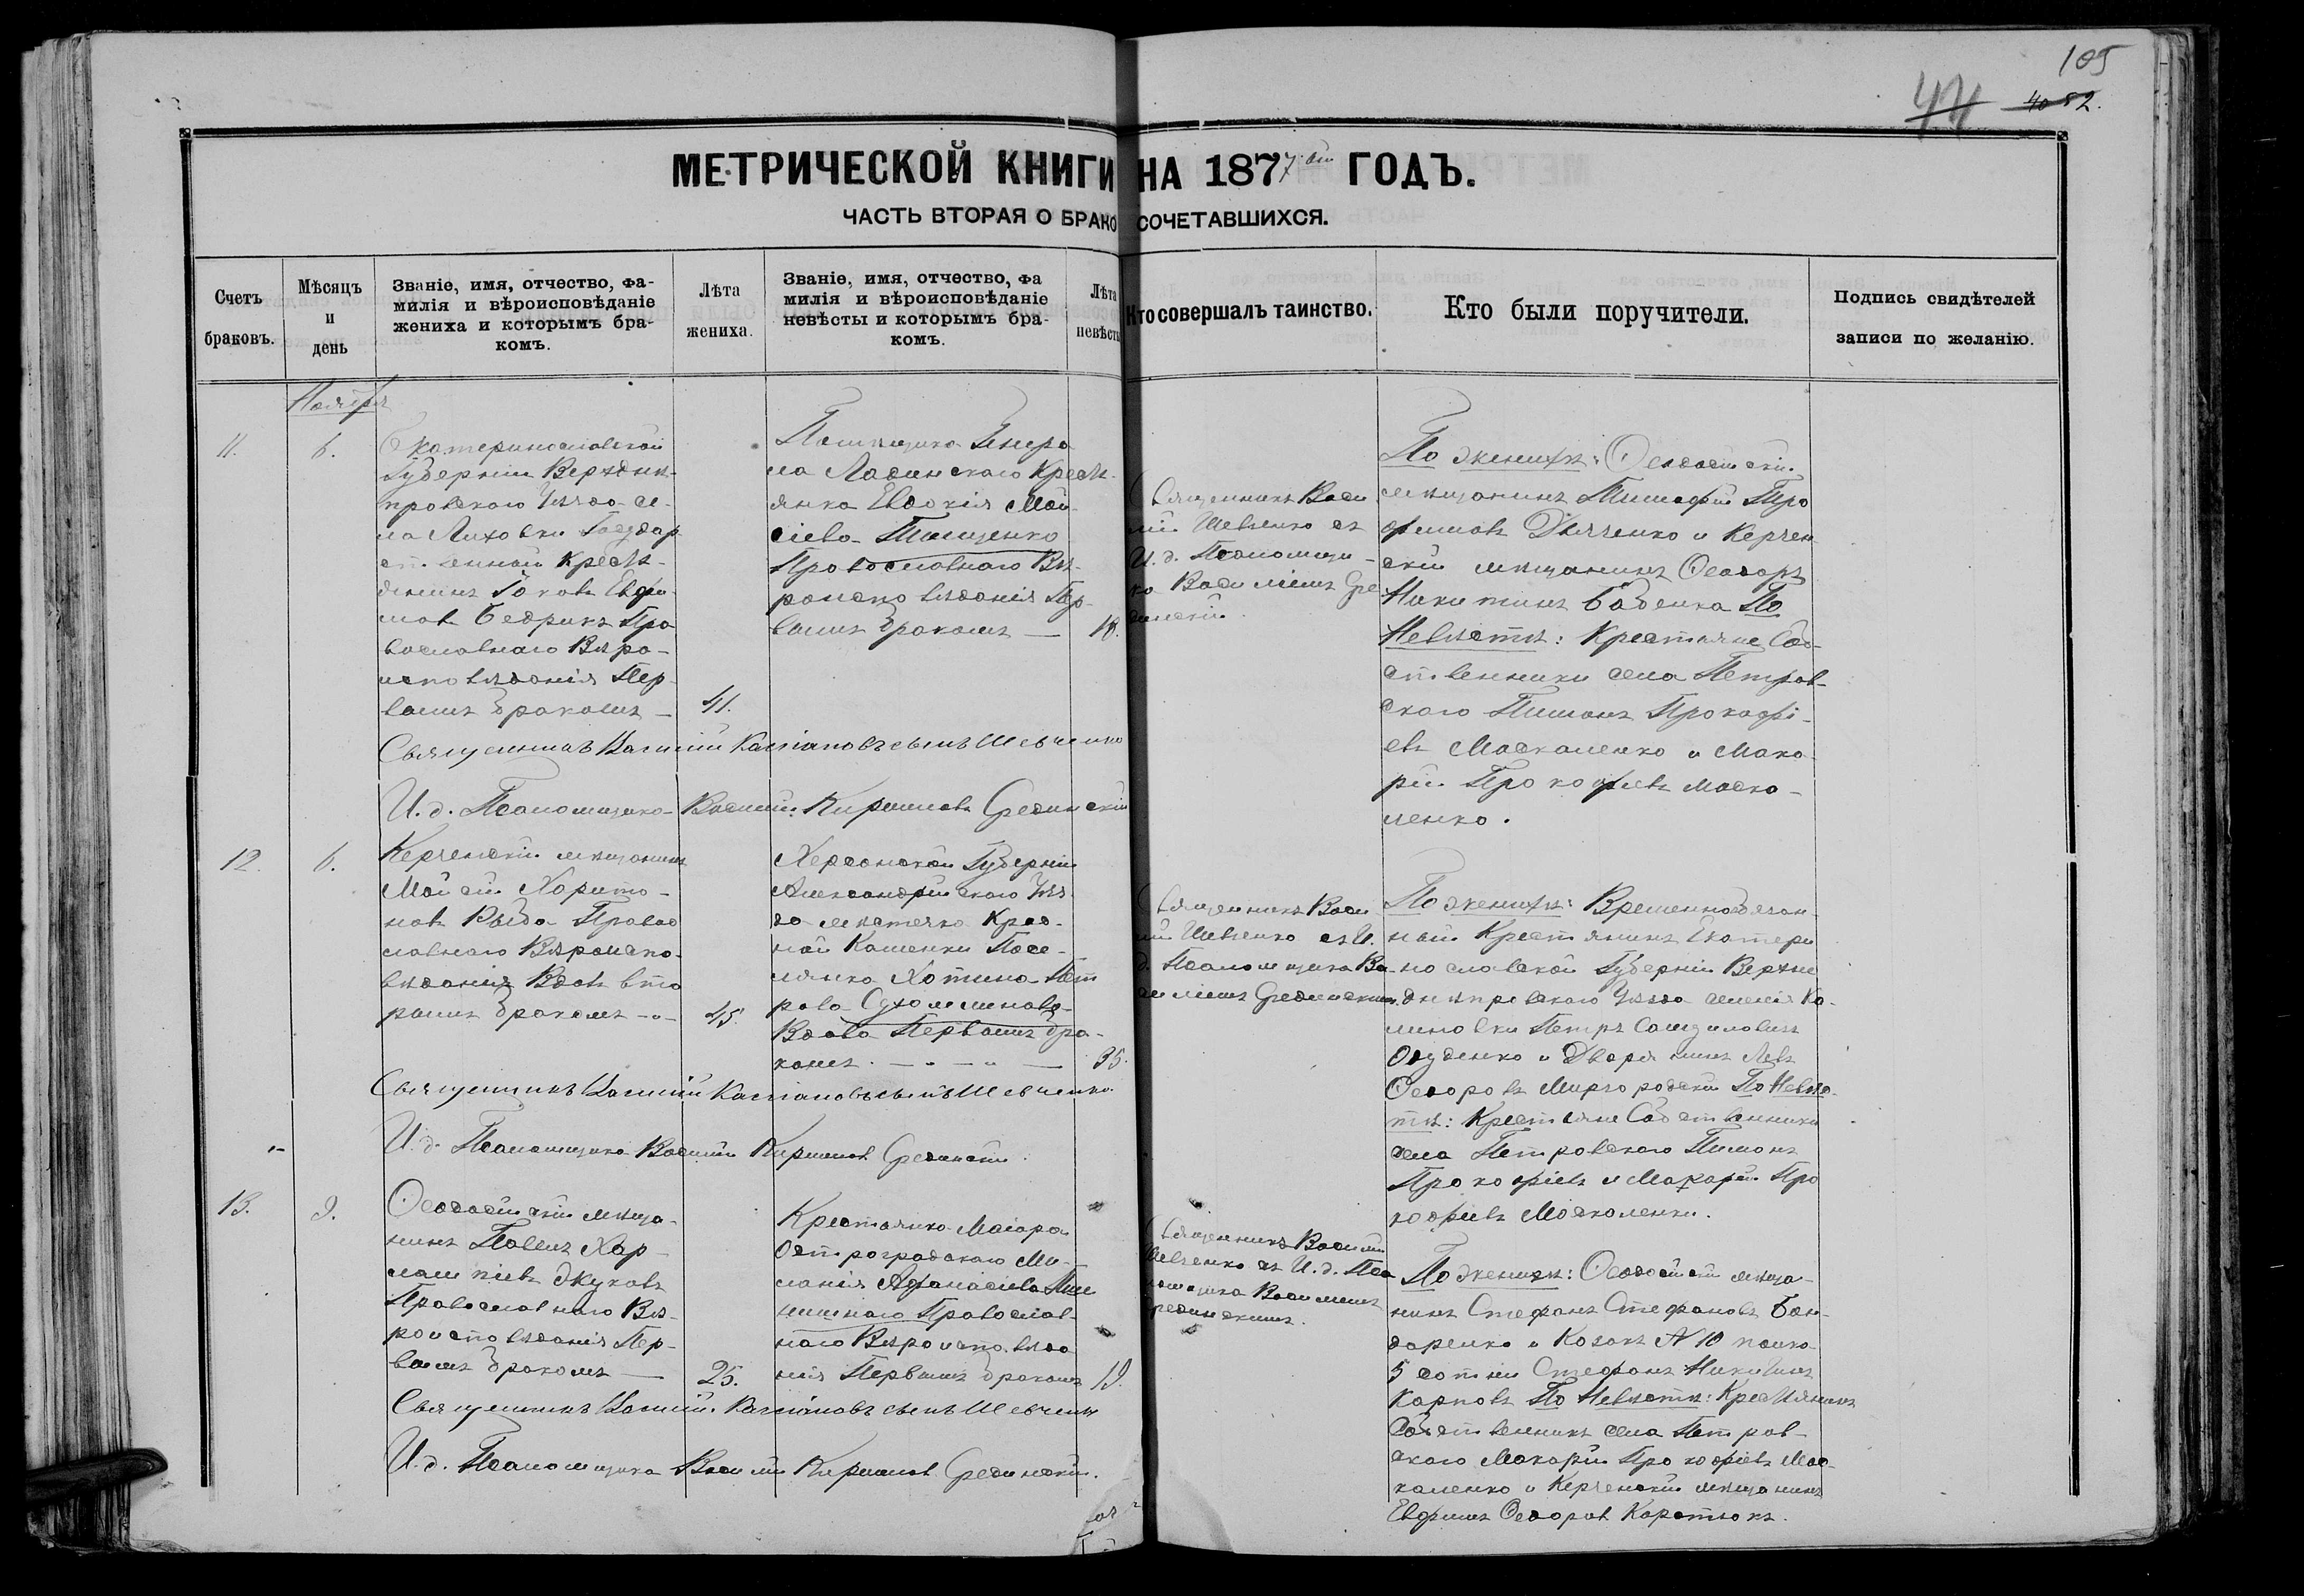 105
44 40 52.
МЕТРИЧЕСКОЙ КНИГИ НА 1877й ГОДЪ.
ЧАСТЬ ВТОРАЯ О БРАКОСОЧЕТАВШИХСЯ.
Счетъ браковъ.
Мѣсяцъ и день
Званіе, имя, отчество, фа-
милія и вѣроисповѣданіе
жениха и которымъ бра-
комъ.
Лѣта жениха.
Званіе, имя, отчество, фа
милія и вѣроисповѣданіе
невѣсты и которымъ бра-
комъ.
Лѣта невѣсты
Кто совершалъ таинство.
Кто были поручители.
Подпись свидѣтелей
записи по желанію.
Ноября
11.
6.
Екатеринославской
Губерніи Верхднѣ-
провскаго Уѣзда се-
ла Лиховки Государ
ственной Кресть-
янинъ Іаковъ Евфи-
мовъ Бедрикъ Пра
вославнаго Вѣро-
исповѣданія Пер-
вымъ бракомъ —
41.
Помѣщика Генера
ла Ладинскаго Кресть-
янка Евдокія Мой
сіева Тищенко
Православнаго Вѣ-
роисповѣданія Пер-
вымъ бракомъ —
18.
Священникъ Васи
лій Шевченко съ
И. д. Псаломщи-
ка Василіемъ Сре
динскій.
По женихѣ: Ѳеодосійскій
мѣщанинъ Тимофій Тро
фимовъ Дьяченко и Керчен
скій мѣщанинъ Ѳеодоръ
Никитинъ Бабенка По
Невѣстѣ: Крестьяне Соб-
ственники села Петров-
скаго Пимонъ Прокофі-
евъ Москаленко и Мака-
рій Прокофіевъ Моска-
ленко.
Священникъ Василій Кассіановъ сынъ Шевченко
И. д. Псаломщика Василій Кириловъ Срединскій
12.
6.
Керченскій мѣщанинъ
Мойсій Харито-
новъ Рыба Правос
лавнаго Вѣроиспо-
вѣданія Вдовъ вто
рымъ бракомъ —
45.
Херсонской Губерніи
Александрійскаго Уѣз-
да мѣстечка Крас-
ной Каменки Посе-
лянка Хотина Пет
рова
Вдова Первымъ бра-
комъ —
35.
Священникъ Васи
лій Шевченко съ И.
д. Псаломщика Ва-
силіемъ Срединскимъ.
По женихѣ: Временнобязан-
ный Крестьянинъ Екатери
нославской Губерніи Верхне
днѣпровскаго Уѣзда селенія Ка-
линовки Петръ Самуиловичъ
и Дворянинъ Левъ
Ѳеодоровъ Миргородскій По Невѣс-
тѣ: Крестьяне Собственники
села Петровскаго Пимонъ
Прокофіевъ и Макарій Про
кофіевъ Москаленки.
Священникъ Василій Кассіановъ сынъ Шевченко
И. д. Псаломщика Василій Кириловъ Срединскій.
13.
9.
Ѳеодосійскій мѣща-
нинъ Павелъ Хар-
лампіевъ Жуковъ
Православнаго Вѣ-
роисповѣданія Пер-
вымъ бракомъ —
25.
Крестьянка Маіора
Остроградскаго Ме-
ланія Афанасіева
Православ-
наго Вѣроисповѣда
нія Первымъ бракомъ
19.
Священникъ Василій
Шевченко съ И. д. Пса
ломщика Василіемъ
Срединскимъ.
По женихѣ: Ѳеодосійскій мѣща-
нинъ Стефанъ Стефановъ Бон-
даренко и Козакъ № 10 полка
5 сотни Стефанъ Никитинъ
Карповъ По Невѣстѣ: Крестьянинъ
Собственникъ села Петров-
скаго Макарій Прокофіевъ Мос-
каленко и Керченскій мѣщанинъ
Евфимъ Ѳеодоровъ Коротюкъ.
Священникъ Василій Кассіановъ сынъ Шевченко
И. д. Псаломщика Василій Кириловъ Срединскій.